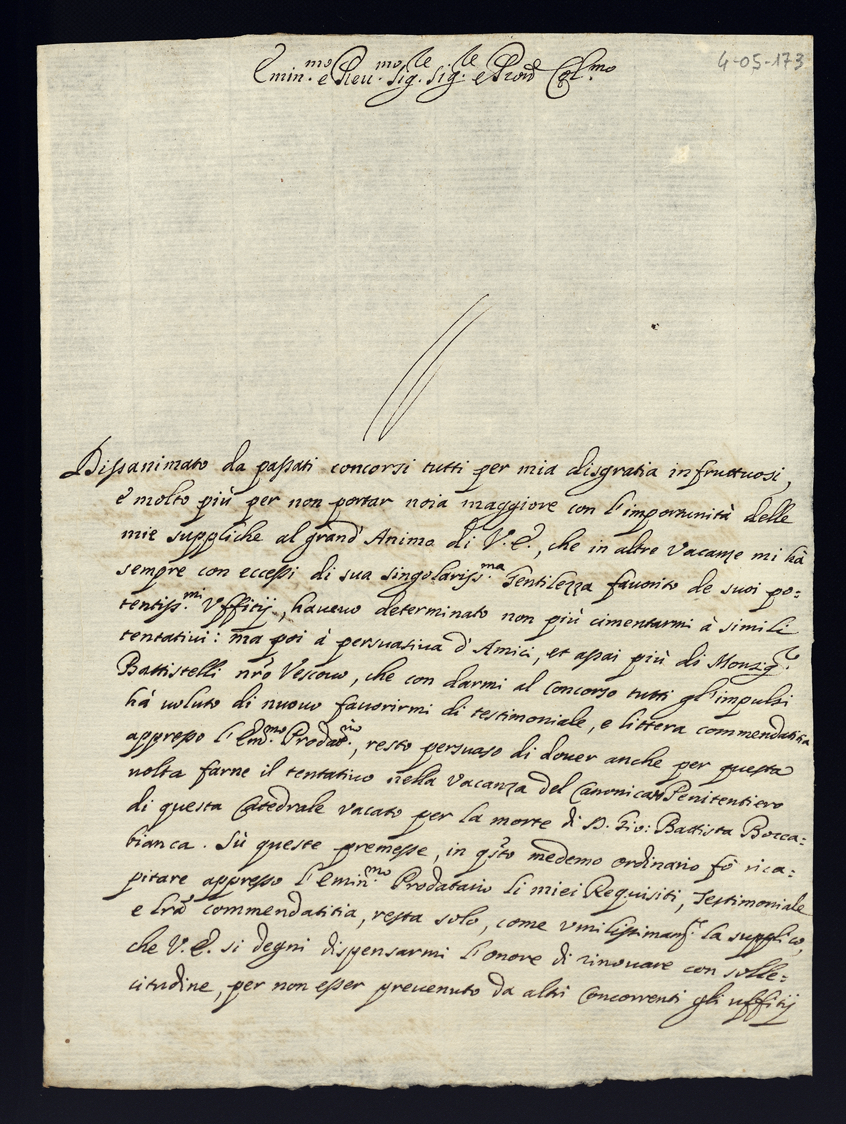 4-05-173
Emin.mo e Reu.mo Sig.le Sig.le e Pron Col.mo
Dissanimato da passati concorsi tutti per mia disgratia infruttuosi,
e molto più per non portar noia maggiore con l'importunità delle
mie suppliche al grand'Animo di V. E., che in altre vacanze mi hà
sempre con eccessi di sua singolariss.ma Gentilezza favorito de suoi po=
tentiss.mi Vfficij, haueuo determinato non più cimentarmi à simili
tentatiui: ma poi à persuasiua d'Amici, et assai più di Monsig.r
Battistelli nr̃o Vescouo, che con darmi al Concorso tutti gl'impulsi
hà uoluto di nuouo fauorirmi di testimoniale, e littera commendatitia
appresso l'Em.mo Prodat.rio, resto persuaso di douer anche per questa
uolta farne il tentatiuo nella Vacanza del Canonicato Penitentiero
di questa Catedrale vacato per la morte di D. Gio: Battista Bocca=
bianca. Sù queste premesse, in q̃sto medemo ordinario fò rica=
pitare appresso l'Emin.mo Prodatario li miei Requisiti, Testimoniale
e lr̃a commendatitia, resta solo, come vmilissimam.te la supplico,
che V. E. si degni dispensarmi l'onore di rinouare con solle=
citudine, per non esser preuenuto da altri Concorrenti gli vffitij